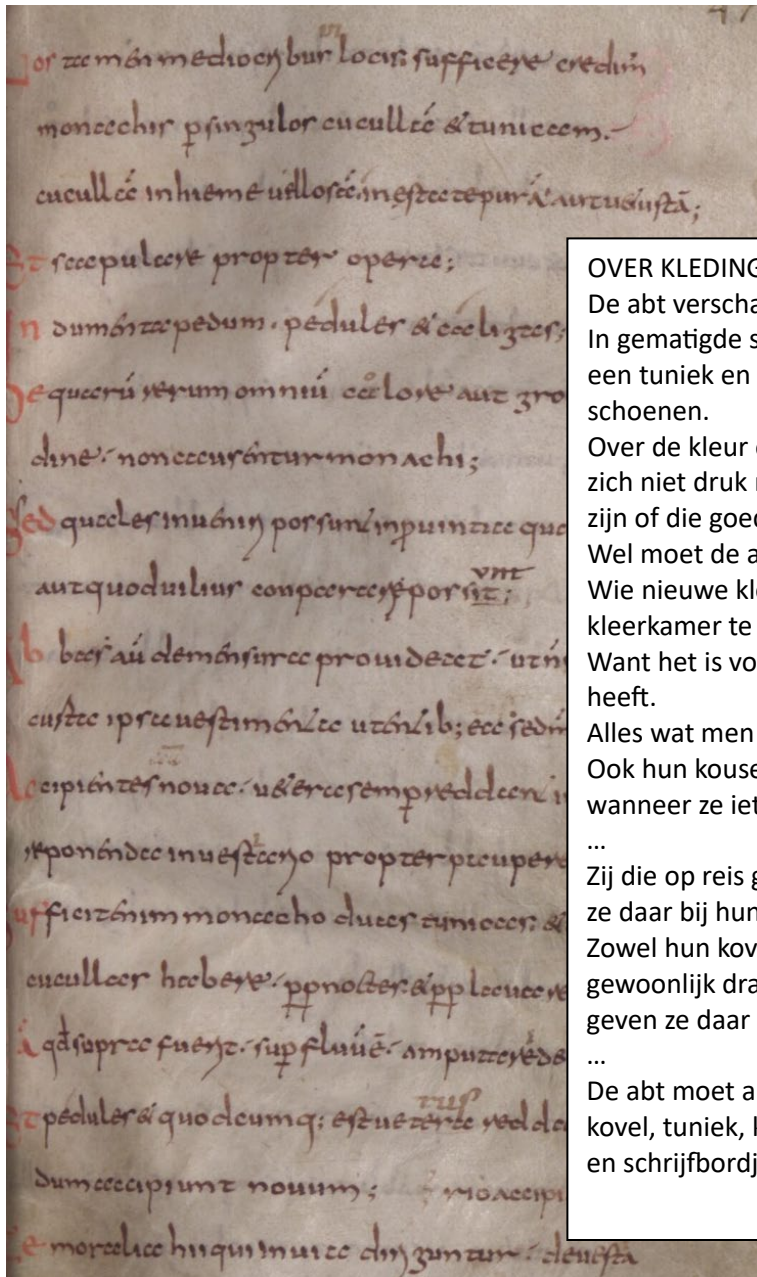 Nos tamen mediocrybus locis sufficere credim
monachis p singulos cuculla & tunicam.
cuculla in hieme uellosa in estate pura aut uetusta;
Et scapulare propter opera;
Indumenta pedum. pedules & caligas;
De quaru rerum omniu colore aut gro
dine non causentur monachi;
Sed quales inueniri possunt in puintia qua
aut quod uilius conparare possit;
unt
Abbas au de mensura prouideat ut n
custa ipsa uestimenta utentib; ea sed m
Accipientes noua uetera semp reddant i
reponenda in uestiario propter paupere
Sufficit enim monacho duas tunicas &
cucullas habere pp noctes & pp lauare
Ia qd supra fuerit supfluu e amputare de
Et pedules & quodcumq; est uetere redda
tus
dum accipiunt nouum; accipi
Femoralia hii qui in uia diriguntur de uesta
OVER KLEDING
De abt verscha
In gematigde s
een tuniek en
schoenen.
Over de kleur
zich niet druk
zijn of die goed
Wel moet de a
Wie nieuwe kl
kleerkamer te
Want het is vo
heeft.
Alles wat men
Ook hun kouse
wanneer ze iet
...
Zij die op reis g
ze daar bij hun
Zowel hun kov
gewoonlijk dra
geven ze daar
...
De abt moet a
kovel, tuniek,
en schrijfbordj